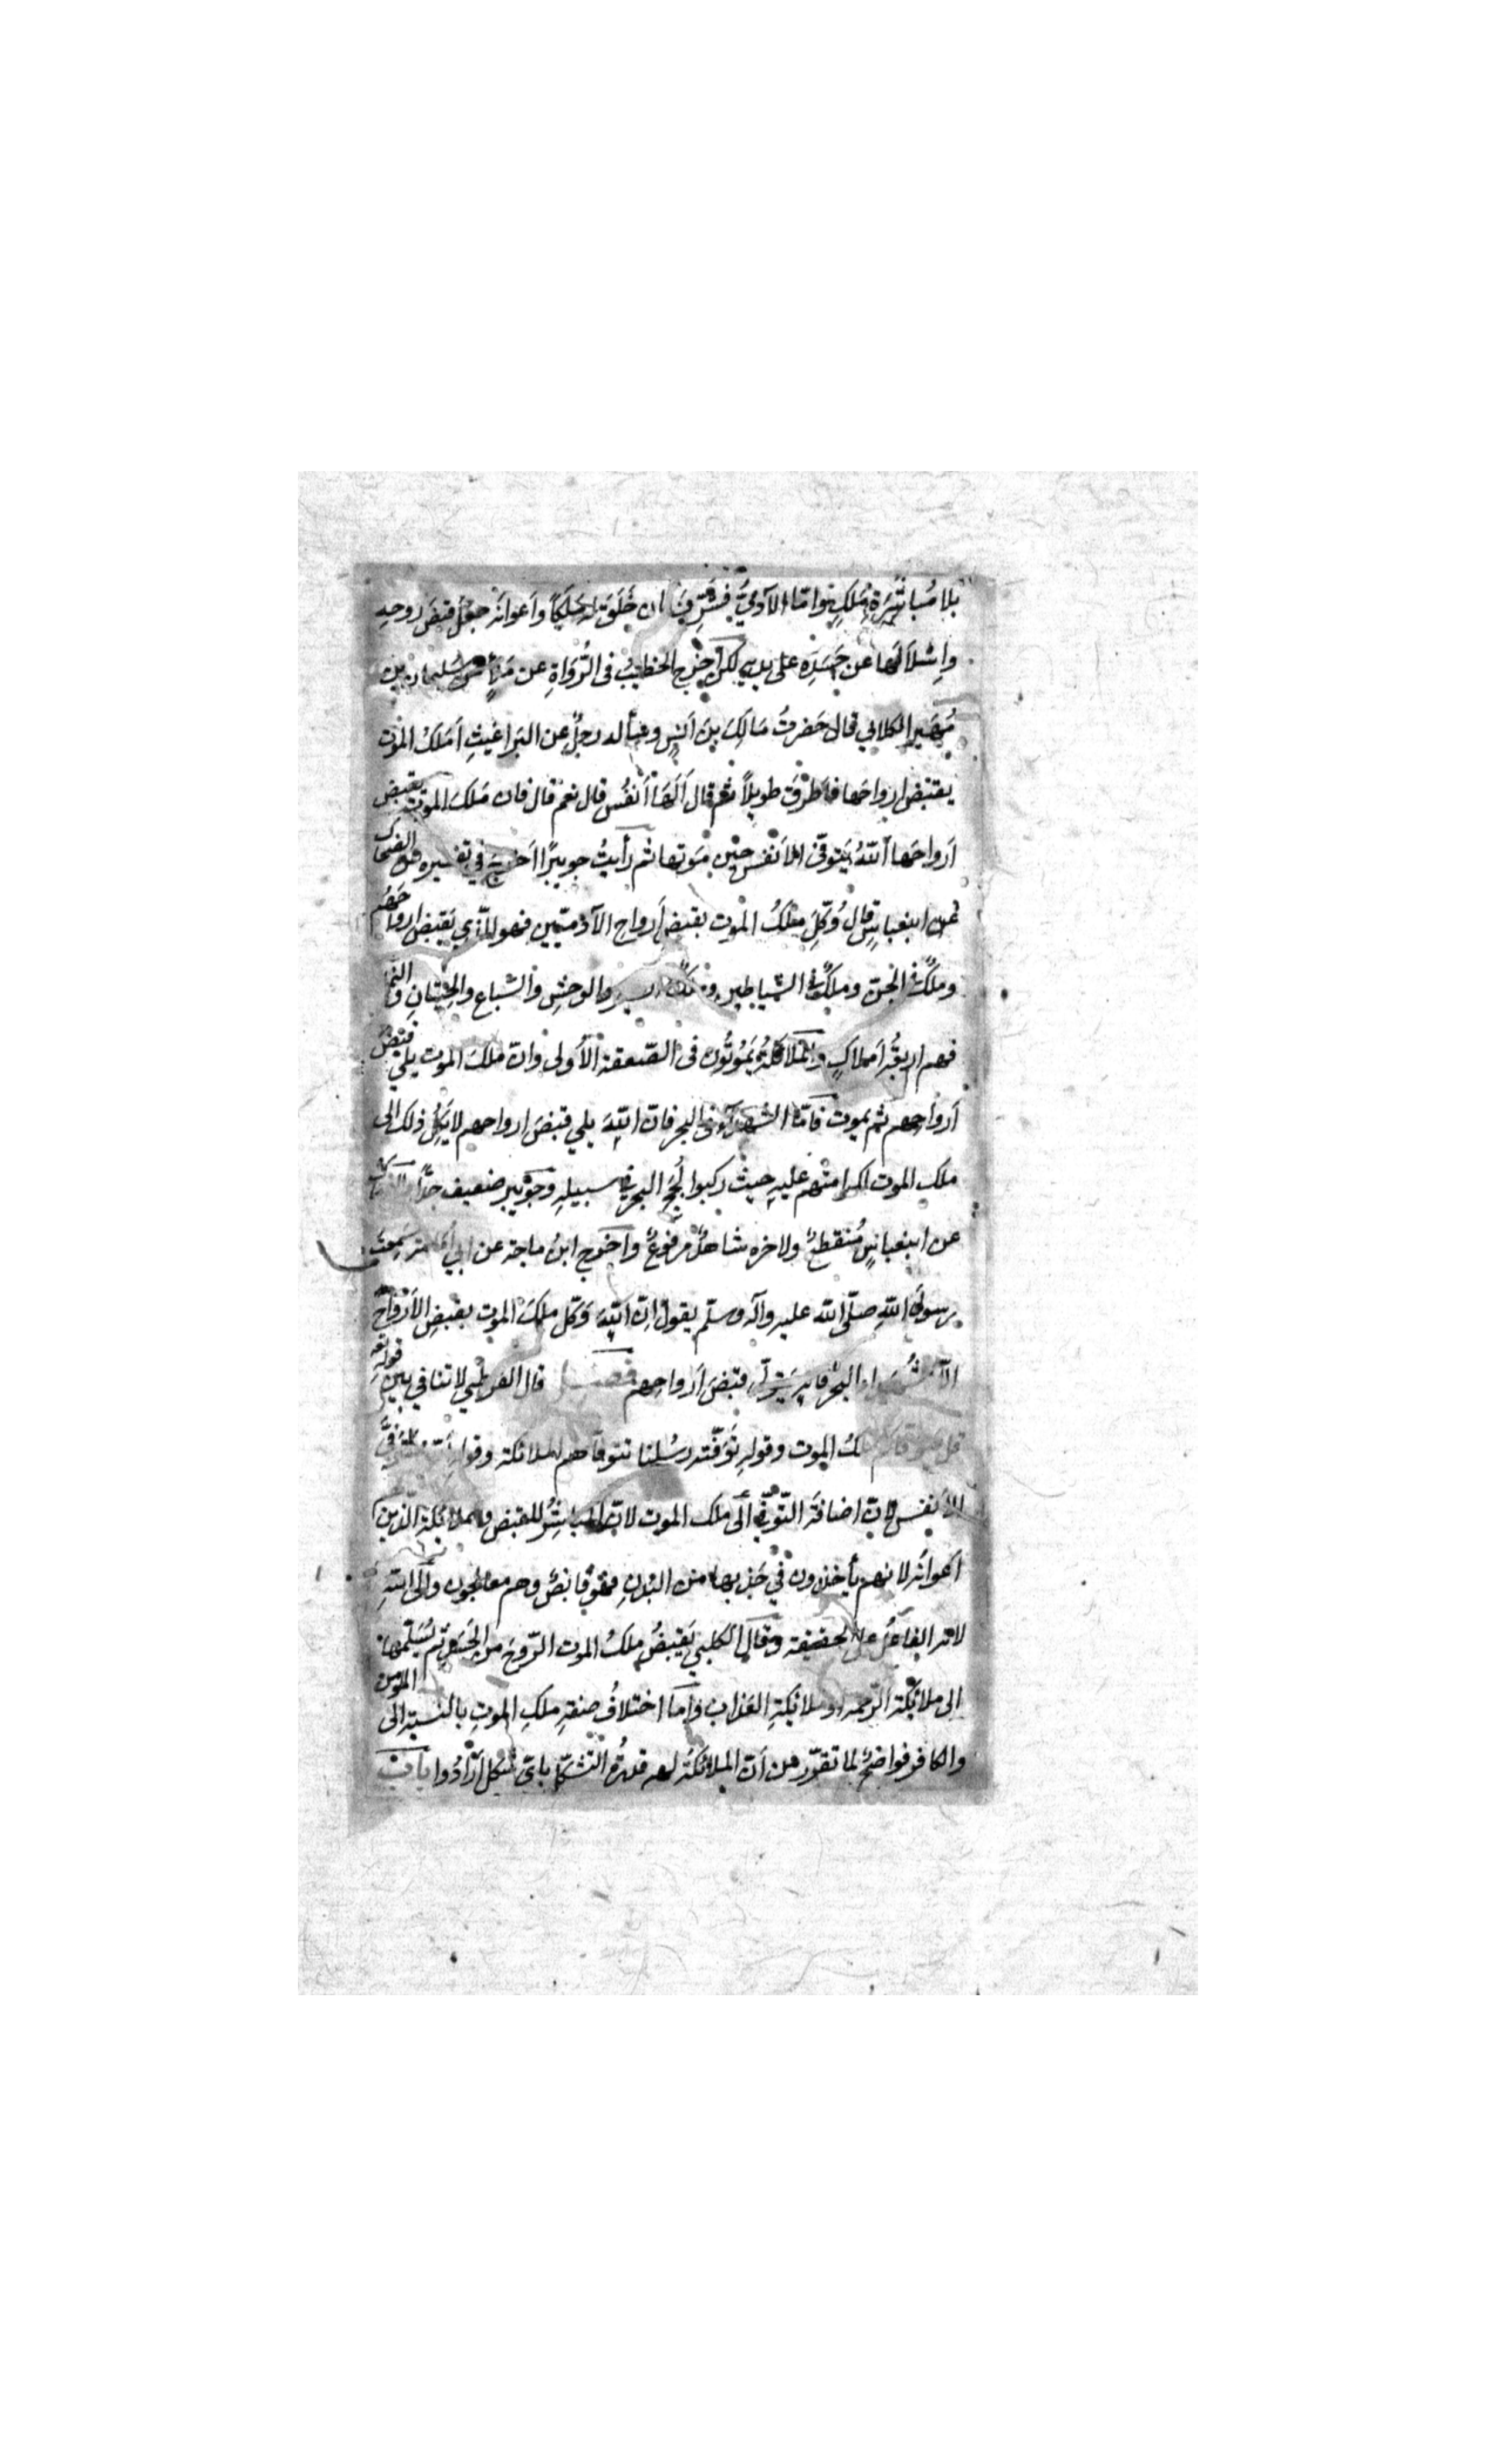 بلا مُباشَرَةِ مَلَكٍ واما الآدميُّ فَشُرِّفَ ان خَلَقَ له مَلَكاً وأعوانَه جعَلَ قبضَ روحِهِ
وإسْلالَها عن جَسَدِه على يديه لكن أخرج الخطيبُ فى الرُّوَاةِ عن مالك عن سليمان بن
مُهَيرالكلابي قال حَضرتُ مَالِكَ بنَ اَنسٍ وسأله رجلٌ عن البَراغيثِ أمَلَكُ المَوْت
يقبض ارواحَها فأطرَقَ طويلاً ثم قال أَلَها أنفُس قال نعم قال فان مَلَكَ الموت يقبض
اَرواحَها اَللهُ يَتوفّى الاَنفسَ حِين مَوتها ثم رأيتُ جويبرًا اَخرج في تفسيره عن الضحاك
عن ابنعباسٍ قال وُكِّلَ ملَكُ الموت بقبض أرواح الآدميّين فهو الّذي يَقبض ارواحَهُم
وملَكٌ فى الجنّ وملَكٌ فى الشياطين وملَكٌ فى الطير والوحشِ والسِّباع والحِيتانِ والنمل
فهم اربعَةُ اَملاكٍ والملائكةُ يَمُوتُون فى الصّعقة الأولى وانّ ملَكَ الموت يلي قبضَ
اَرواحِهم ثم يموت فامّا الشهدآء فى البحر فانّ اللهَ يلي قبضَ ارواحهم لا يَكِل ذلك الى
ملكِ الموت لكرامتهم عليهِ حيث ركبوا لُجَجَ البحر في سبيلهِ وجُوَيبر ضعيف جدًّا والضحاك
عن ابنعباسٍ مُنقطعٌ ولاخره شاهدٌ مرفوعٌ وأخرج ابنُ ماجه عن ابي أمامة سَمِعتُ
رسولَ اللهِ صلّى الله عليه وآله وسلّم يقول انّ اللهَ وَكّل ملَكَ الموت بقبضِ الأرواحِ
الاّ شُهَداءَ البحر فانه يَتولّى قبضَ أرواحِهم فصـــل قال القرطبي لا تنافي بين قوله تعه
قل يتوفاكم ملكُ الموت وقولهِ تَوَفّته رسُلنا تتوفاهم الملائكة وقوله الله يتوفّى
الأنفس لانّ اضافةَ التّوفّي الى ملك الموت لانّه المباشِرُ للقبض وللملائكة الّذين
اَعوانه لانهم يأخذون في جَذبها من البَدنِ فهو قابضٌ وهم معالجون والى اللهِ
لانه الفاعلُ على الحقيقة وقال الكلبي يَقبضُ ملكُ الموت الرّوحَ من الجَسَدِ ثم يُسَلّمها
الى ملائكة الرّحمه او ملائكةِ العَذاب واما اختلافُ صفةِ ملكِ الموتِ بالنسبة الى المؤمن
والكافر فواضحٌ لما تقرّر من أنّ الملائكةَ لهم قدرةُ التشكل باىّ شكل أرادُوا